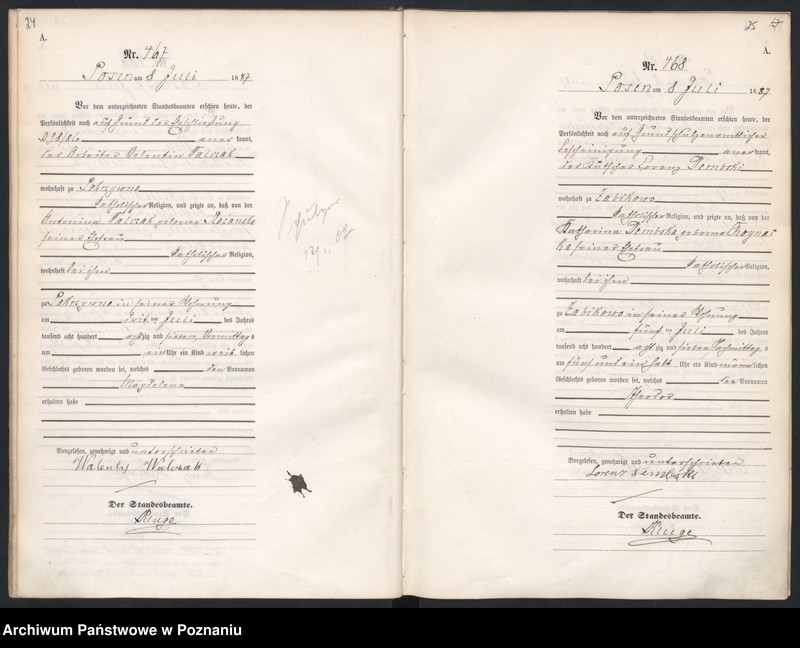 24
A.
Nr. 467
Posen am 8 Juli 1887
Vor dem unterzeichneten Standesbeamten erschien heute, der
Persönlichkeit nach auf Grund der
anerkannt,
der Arbeiter Valentin
wohnhaft zu
katholischer Religion, und zeigte an, daß von der
Antonina geborne
seiner Ehefrau
katholischer Religion,
wohnhaft bei ihm
zu in seiner Wohnung
am Juli des Jahres
tausend acht hundert achtzig und sieben Vormittags
um ein Uhr ein Kind weiblichen
Geschlechts geboren worden sei, welches den Vornamen
Magdalena
erhalten habe
Vorgelesen, genehmigt und unterschrieben
Walenty
Der Standesbeamte.
Kluge
25
A.
Nr. 468
Posen am 8 Juli 1887
Vor dem unterzeichneten Standesbeamten erschien heute, der
Persönlichkeit nach auf Grund
Bescheinigung anerkannt,
der Kutscher Lorenz Dembski
wohnhaft zu Zabikowo
katholischer Religion, und zeigte an, daß von der
Katharina Dembska geborne
seiner Ehefrau
katholischer Religion,
wohnhaft bei ihm
zu Zabikowo in seiner Wohnung
am fünf ten Juli des Jahres
tausend acht hundert achtzig und sieben Nachmittags
um fünf und ein halb Uhr ein Kind männlichen
Geschlechts geboren worden sei, welches den Vornamen
erhalten habe
Vorgelesen, genehmigt und unterschrieben
Lorenz Dembski
Der Standesbeamte.
Kluge
Archiwum Państwowe w Poznaniu